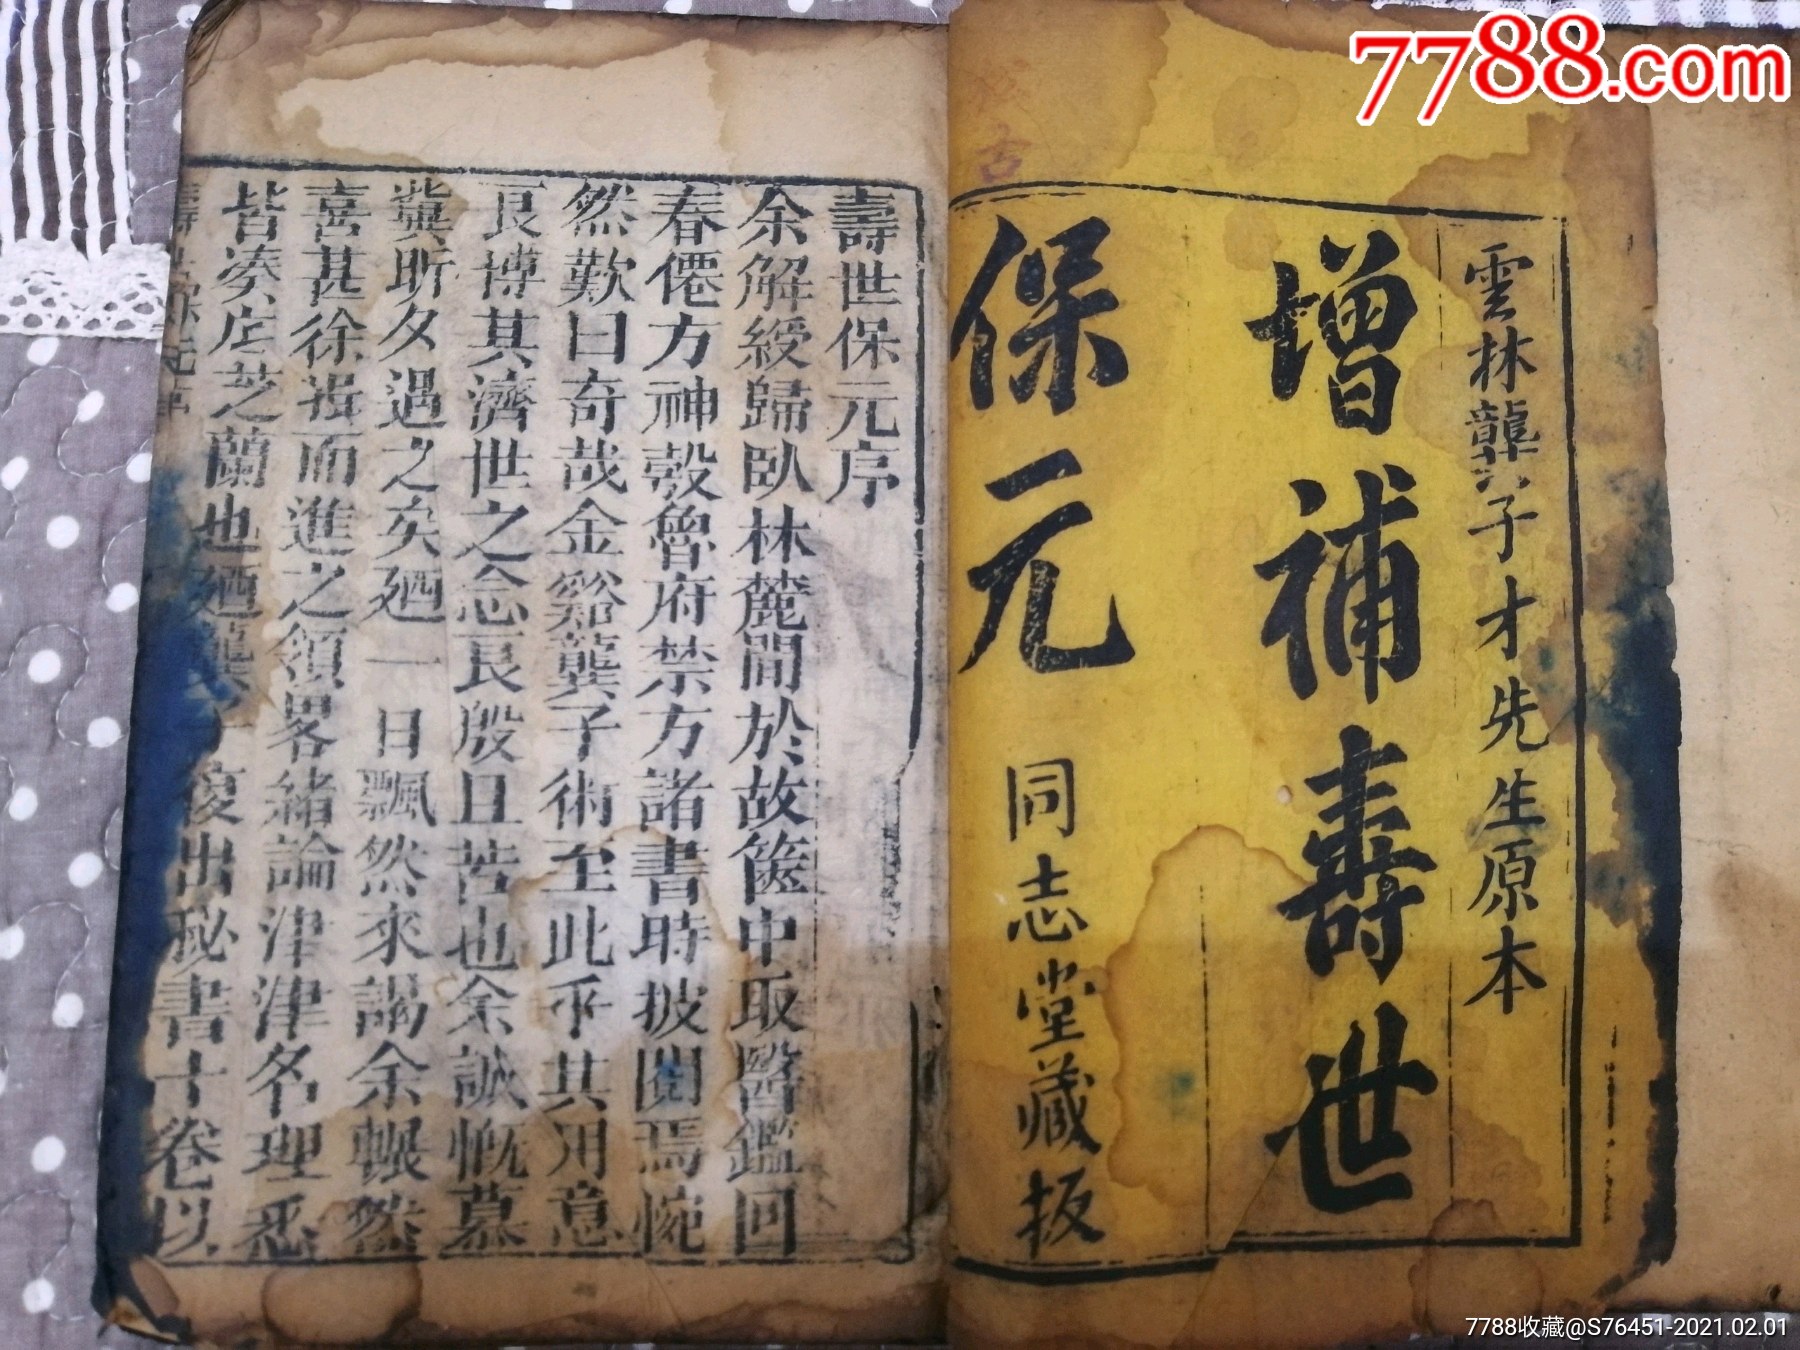 7788.com
雲林龔子才先生原本
增補壽世
保元
同志堂藏板
壽世保元序
余解綬歸臥林麓間於故篋中取醫鑑回
春僊方神彀魯府禁方諸書時披閱焉惋
然歎曰奇哉金谿龔子術至此乎其用意
良博其濟世之念良殷且苦也余誠慨慕
冀昕夕遇之矣廼一日飄然來謁余輾然
喜甚徐揖而進之領畧緒論津津名理悉
皆凑㡳芝蘭也廼龔子復出秘書十卷以
7788收藏@S76451-2021.02.01